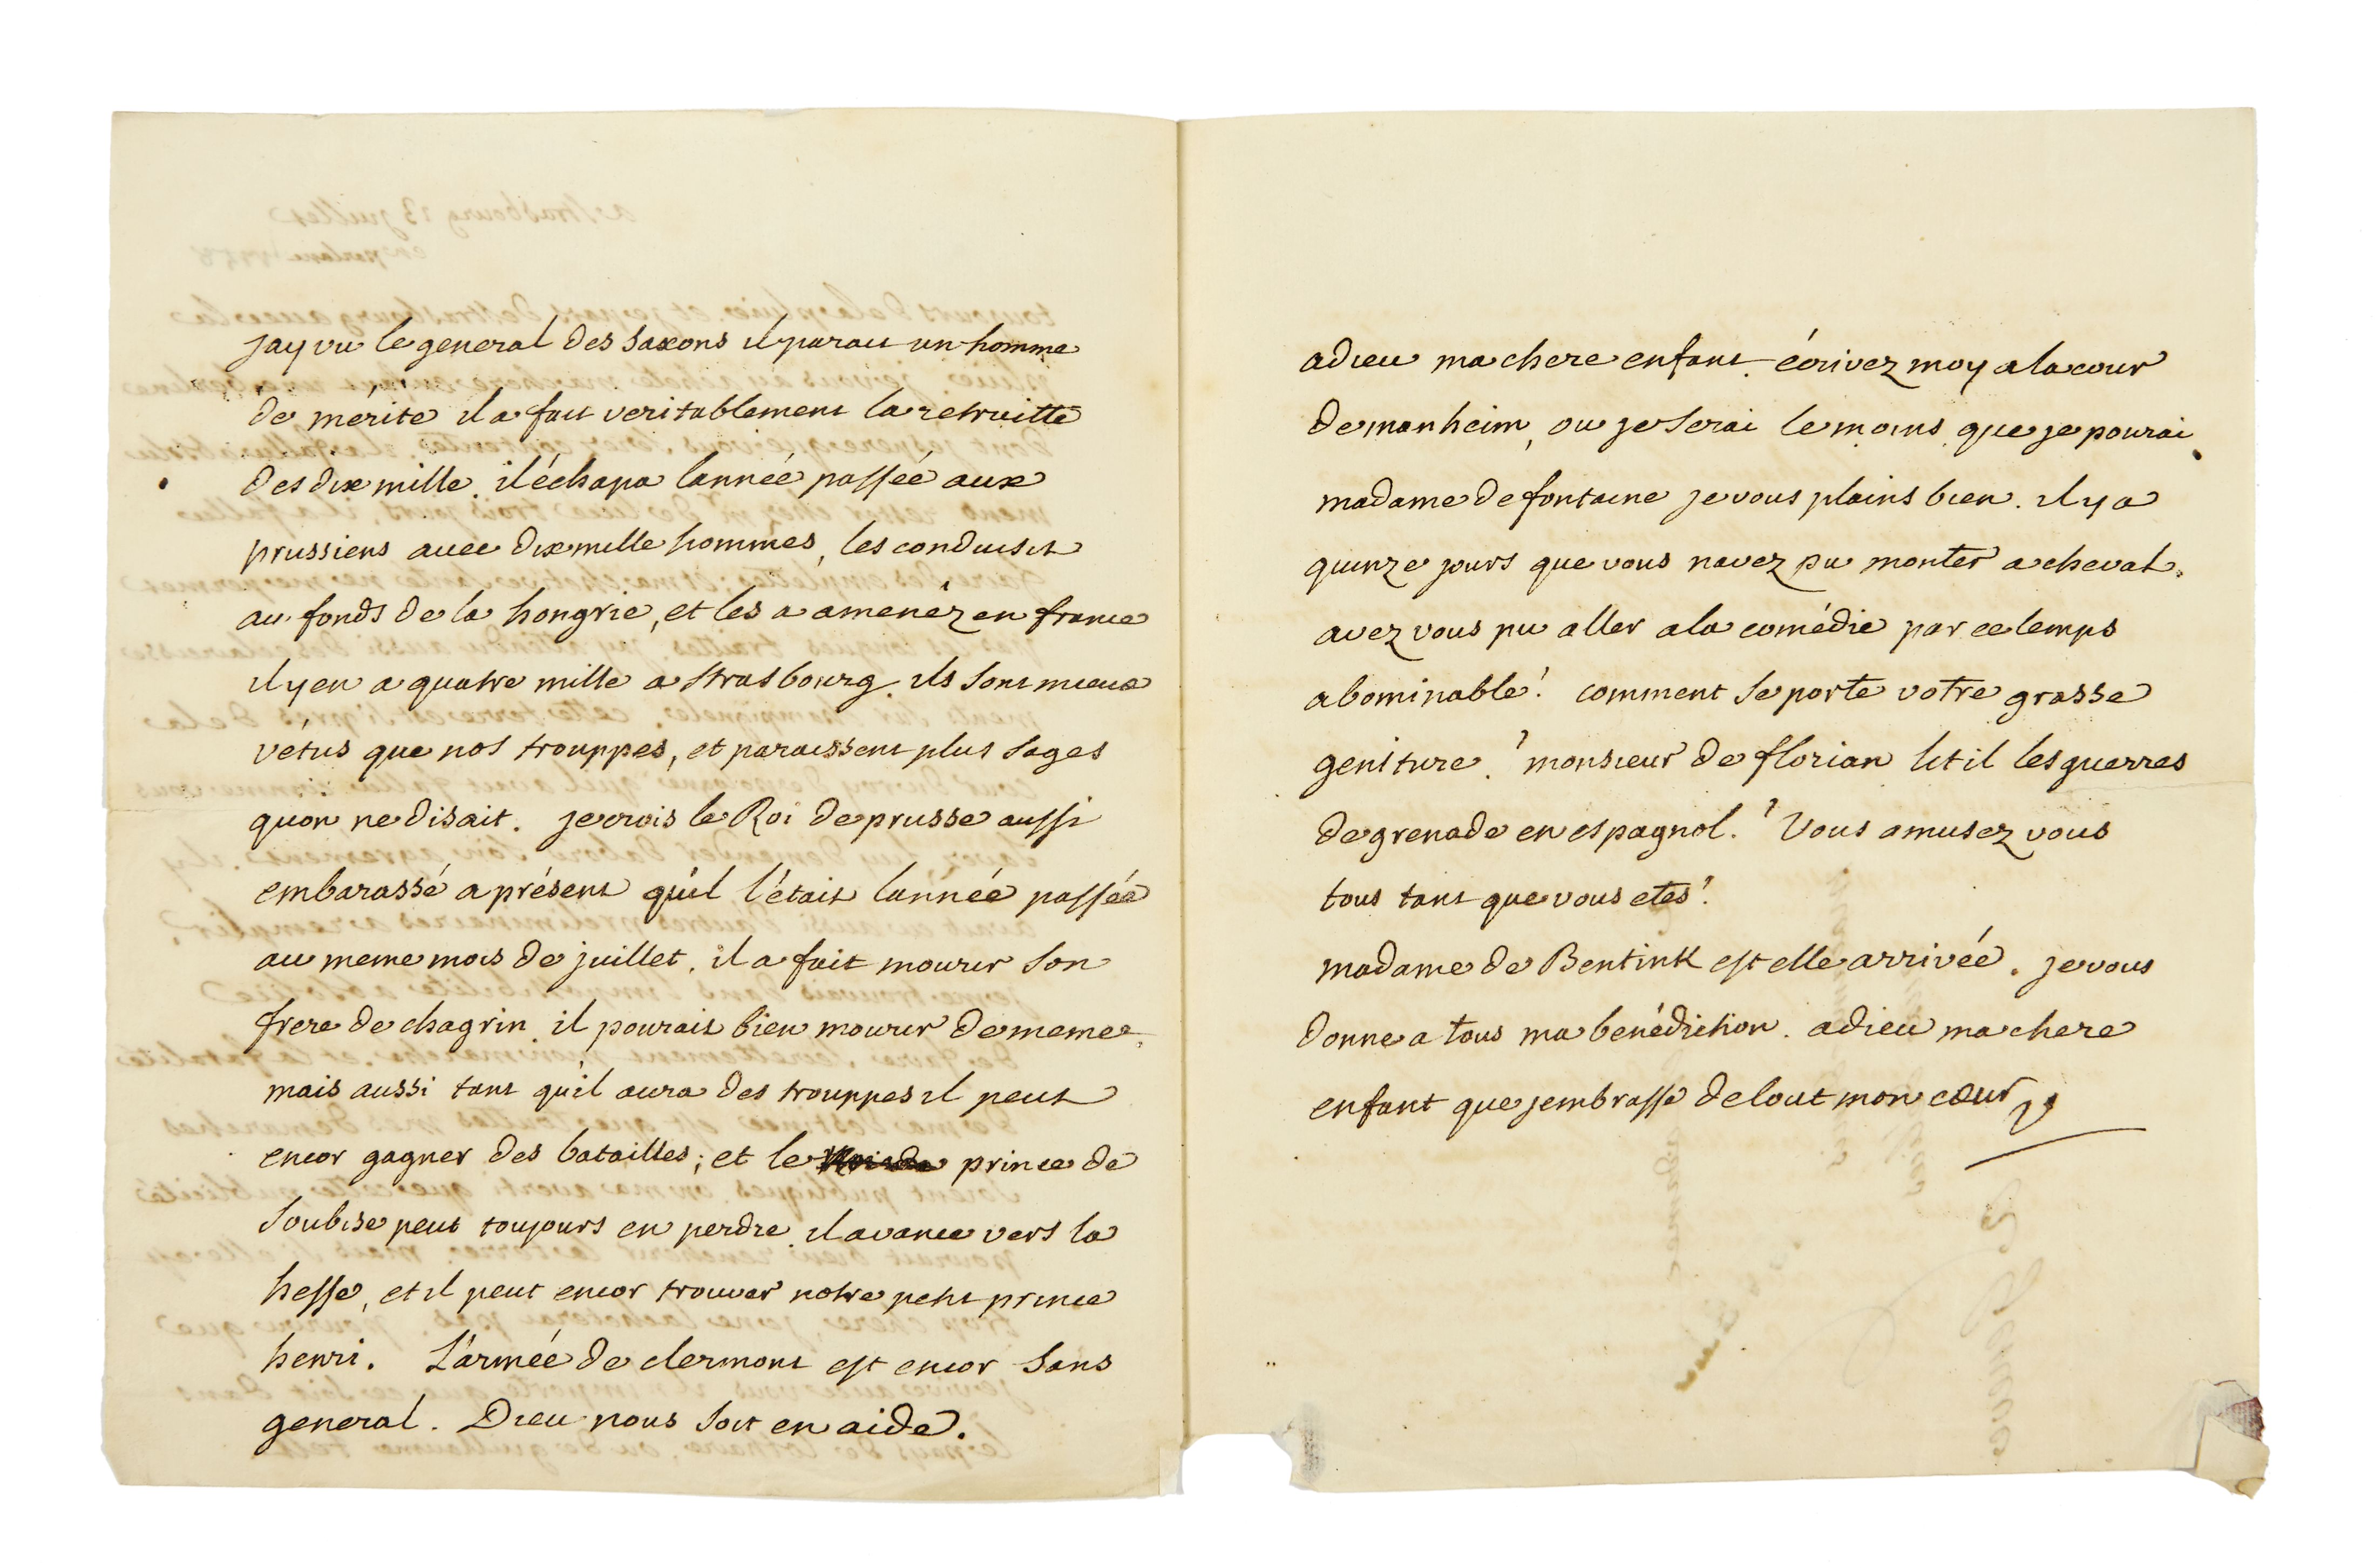 jay vu le general des saxons il parait un homme
de mérite il a fait veritablement la retraitte
des dix mille. il échapa lannée passée aux
prussiens avec dix mille hommes, les conduisit
au fonds de la hongrie, et les a amenéz en france
il y en a quatre mille a strasbourg. ils sont mieux
vétus que nos trouppes, et paraissent plus sages
quon ne disait. je crois le Roi de prusse aussi
embarassé a présent qu'il l'était lannée passée
au meme mois de juillet. il a fait mourir son
frere de chagrin. il pourait bien mourir de meme.
mais aussi tant qu'il aura des trouppes il peut
encor gagner des batailles; et le prince de
soubise peut toujours en perdre. il avance vers la
hesse, et il peut encor trouver notre petit prince
henri. L'armée de clermont est encor sans
general. Dieu nous soit en aide.
adieu ma chere enfant. écrivez moy a la cour
de manheim, ou je serai le moins que je pourai.
madame de fontaine je vous plains bien. il y a
quinze jours que vous navez pu monter a cheval.
avez vous pu aller a la comédie par ce temps
abominable? comment se porte votre grasse
geniture? monsieur de florian lit il les guerres
de grenade en espagnol? Vous amusez vous
tous tant que vous etes?
madame de Bentink est elle arrivée. je vous
donne a tous ma benédiction. adieu ma chere
enfant que jembrasse de tout mon cœur V